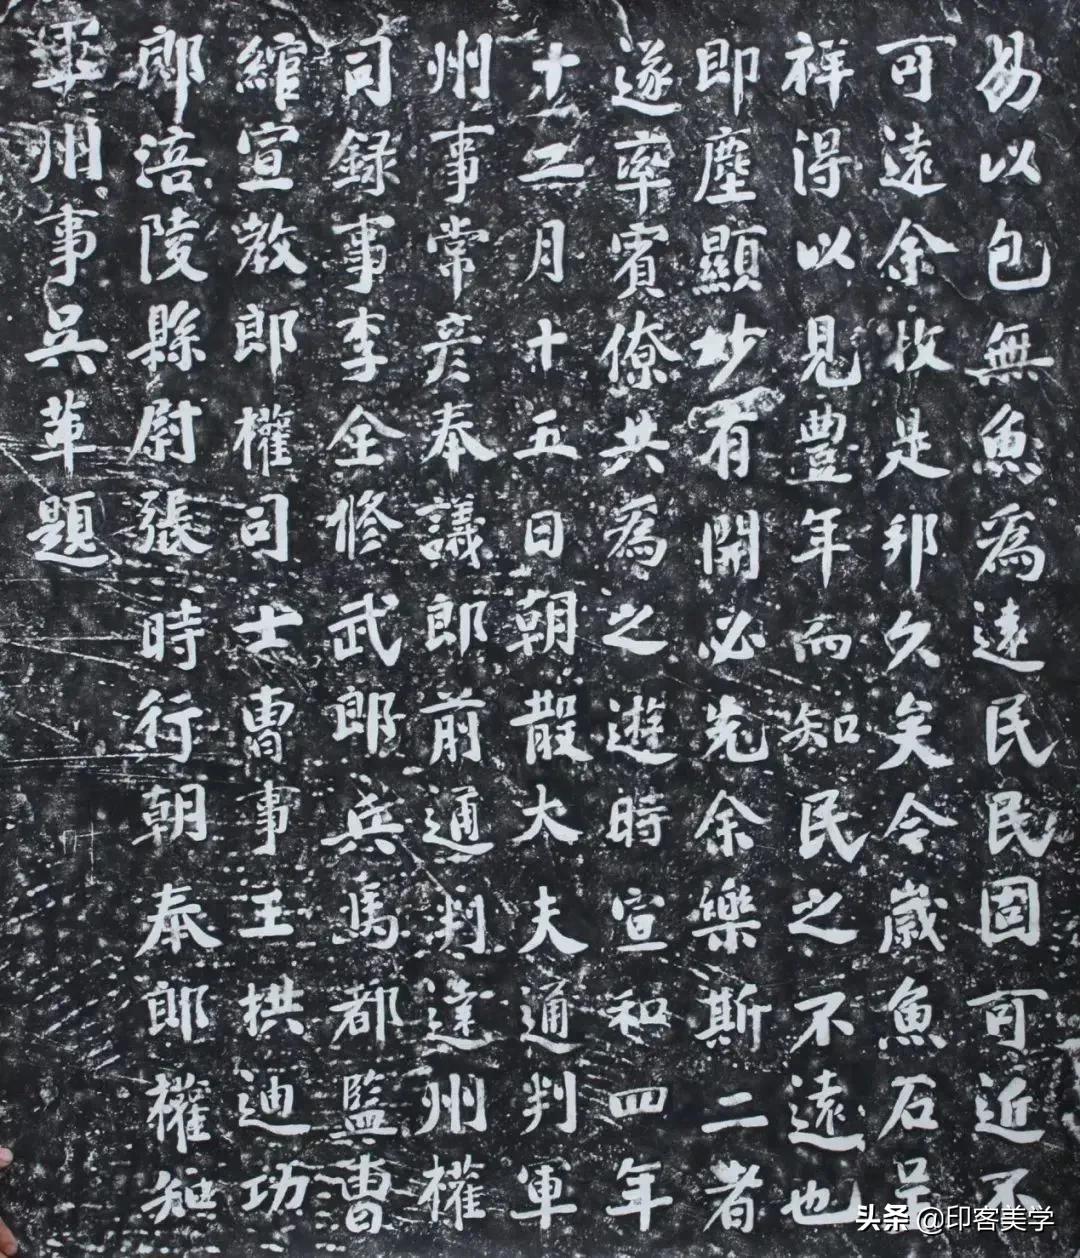 易以包無魚爲遠民民固可近不
可遠余牧是邦久矣今歲魚石呈
祥得以見豊年而知民之不遠也
即塵顯妙有開必先余樂斯二者
遂率賓僚共爲之遊時宣和四年
十二月十五日朝散大夫通判軍
州事常彦奉議郎前通判達州權
司録事李全修武郎兵馬都監曹
綰宣教郎權司士曹事王拱迪功
郎涪陵縣尉張時行朝奉郎權知
軍州事吳革題
头条 @印客美学